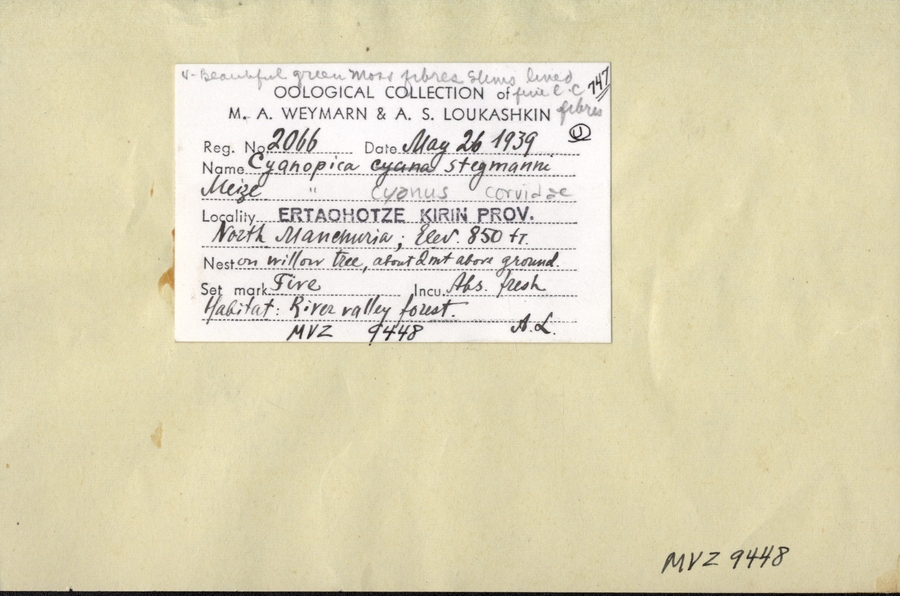 Beautiful green moss fibres stems lined
747
OOLOGICAL COLLECTION of fine
M. A. WEYMARN & A. S. LOUKASHKIN fibres
Reg. No. 2066 Date May 26 1939
U
Name Cyanopica cyana stegmanni
Meize " cyanus corvidae
Locality ERTAOHOTZE KIRIN PROV.
North Manchuria; Elev. 850 ft.
Nest on willow tree, about 2 mt above ground.
Set mark Five Incu. Abs. fresh
Habitat: River valley forest.
MVZ 9448 A.L.
MVZ 9448